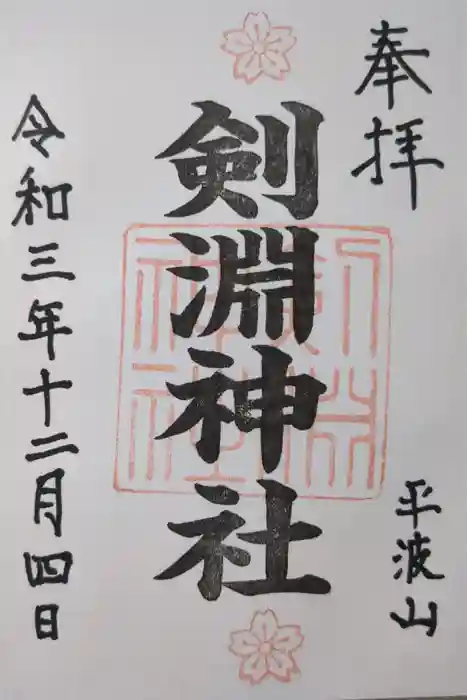 奉拝
平波山
剣淵神社
剣淵神社
令和三年十二月四日